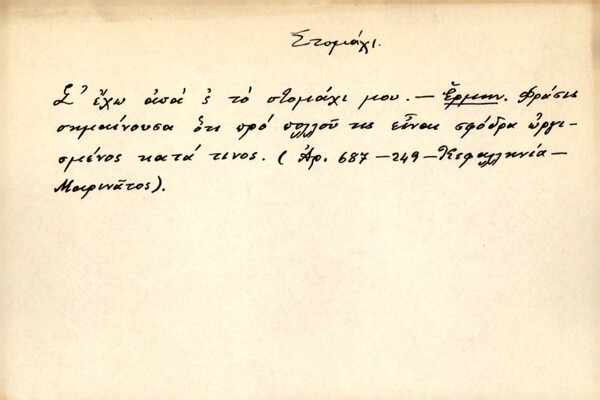 Στομάχι.
Σ' ἔχω ἀπά ς τό στομάχι μου. — Ἑρμην. Φράσις
σημαίνουσα ὅτι πρό πολλοῦ τις εἶναι σφόδρα ὠργι-
σμένος κατά τινος. (Ἀρ. 687 — 249 — Κεφαλληνία —
Μαρινᾶτος).